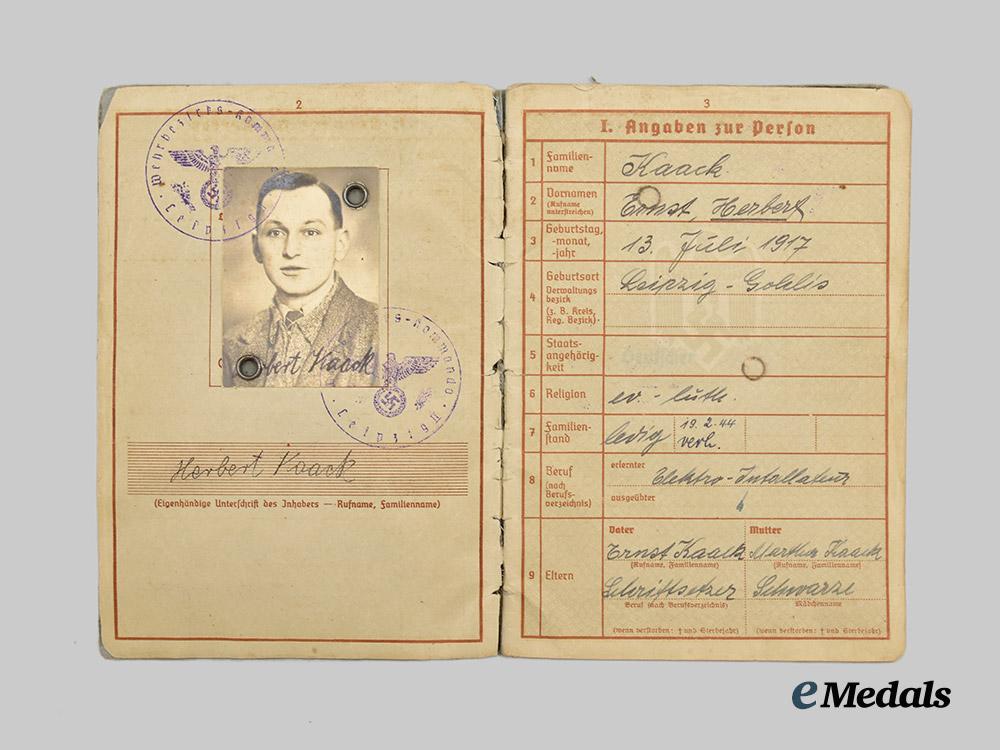 2
Wehrbezirks-Komma
Leipzig
s-Kommando
Leipzig II
Herbert Kaack
Herbert Kaack
(Eigenhändige Unterschrift des Inhabers — Rufname, Familienname)
3
I. Angaben zur Person
1 Familien-
name
Kaack
2 Vornamen
(Rufname
unterstreichen)
Ernst, Herbert
3 Geburtstag,
-monat,
-jahr
13. Juli 1917
4 Geburtsort
Verwaltungs
bezirk
(z. B. Kreis,
Reg. Bezirk)
Leipzig - Gohlis
5 Staats-
angehörig-
keit
Deutscher
6 Religion
ev. - luth.
7 Familien-
stand
ledig
19.2.44
verh.
8 Beruf
(nach
Berufs-
verzeichnis)
erlernter
Elektro-Intallateur
ausgeübter
9 Eltern
Vater Mutter
Ernst Kaack Martha Kaack
(Rufname, Familienname) (Rufname, Familienname)
Schriftsetzer Schwarze
Beruf (nach Berufsverzeichnis) Mädchenname
(wenn verstorben: † und Sterbejahr) (wenn verstorben: † und Sterbejahr)
eMedals